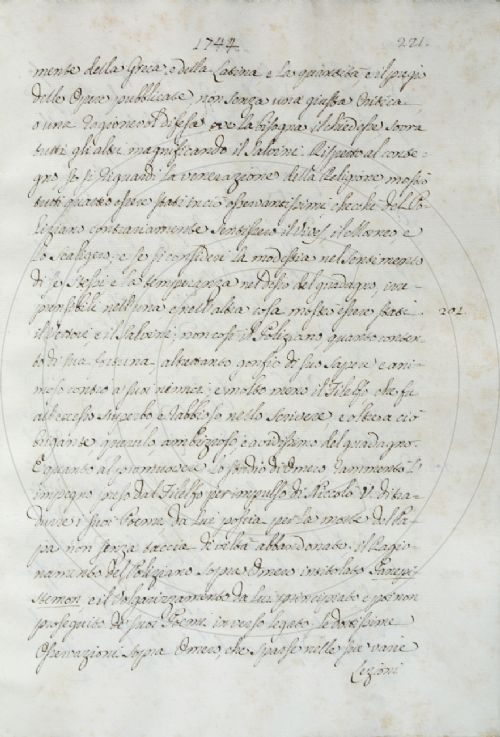 1744. 221.
mente della Greca, e della Latina e la quantità e il pregi
delle Opere pubblicate, non senza una giusta Critica
o una ragionevol difesa ove la bisogna il chiedesse sovra
tutti gli altri magnificando il Salvini. Rispetto al conte-
gno se si riguardi la venerazione della Religione mostrò
tutti quattro essere stati in ciò osservantissimi checchè del Po-
liziano contrariamente sentissero il Vives, il e
lo Scaligero; e se si consideri la modestia nel sentimento
di se stessi e la temperanza nel desio del guadagno, irre-
prensibili nell'una e nell'altra cosa mostrò essere stati 201.
il Vettori e il Salvini; non così il Poliziano quanto conten-
to di sua fortuna, altrettanto gonfio di suo sapere e ani-
moso contro a' suoi nemici; e molto meno il Filelfo che fu
all'eccesso superbo e rabbioso nello scrivere, e oltre a ciò
litigante querulo, ambizioso e avidissimo del guadagno.
E quanto al promuovere lo studio di Omero rammentò l'
impegno preso dal Filelfo per impulso di Niccolò V. di tra-
durre i suoi Poemi, da lui poscia per la morte del Pa-
pa non senza taccia di viltà abbandonato. il Ragio-
namento del Poliziano sopra Omero intitolato Panepi-
stemon e il Volgarizzamento da lui principiato e poi non
proseguito de' suoi Poemi in verso legato, le dottissime
Osservazioni sopra Omero, che sparse nelle sue varie
Lezioni